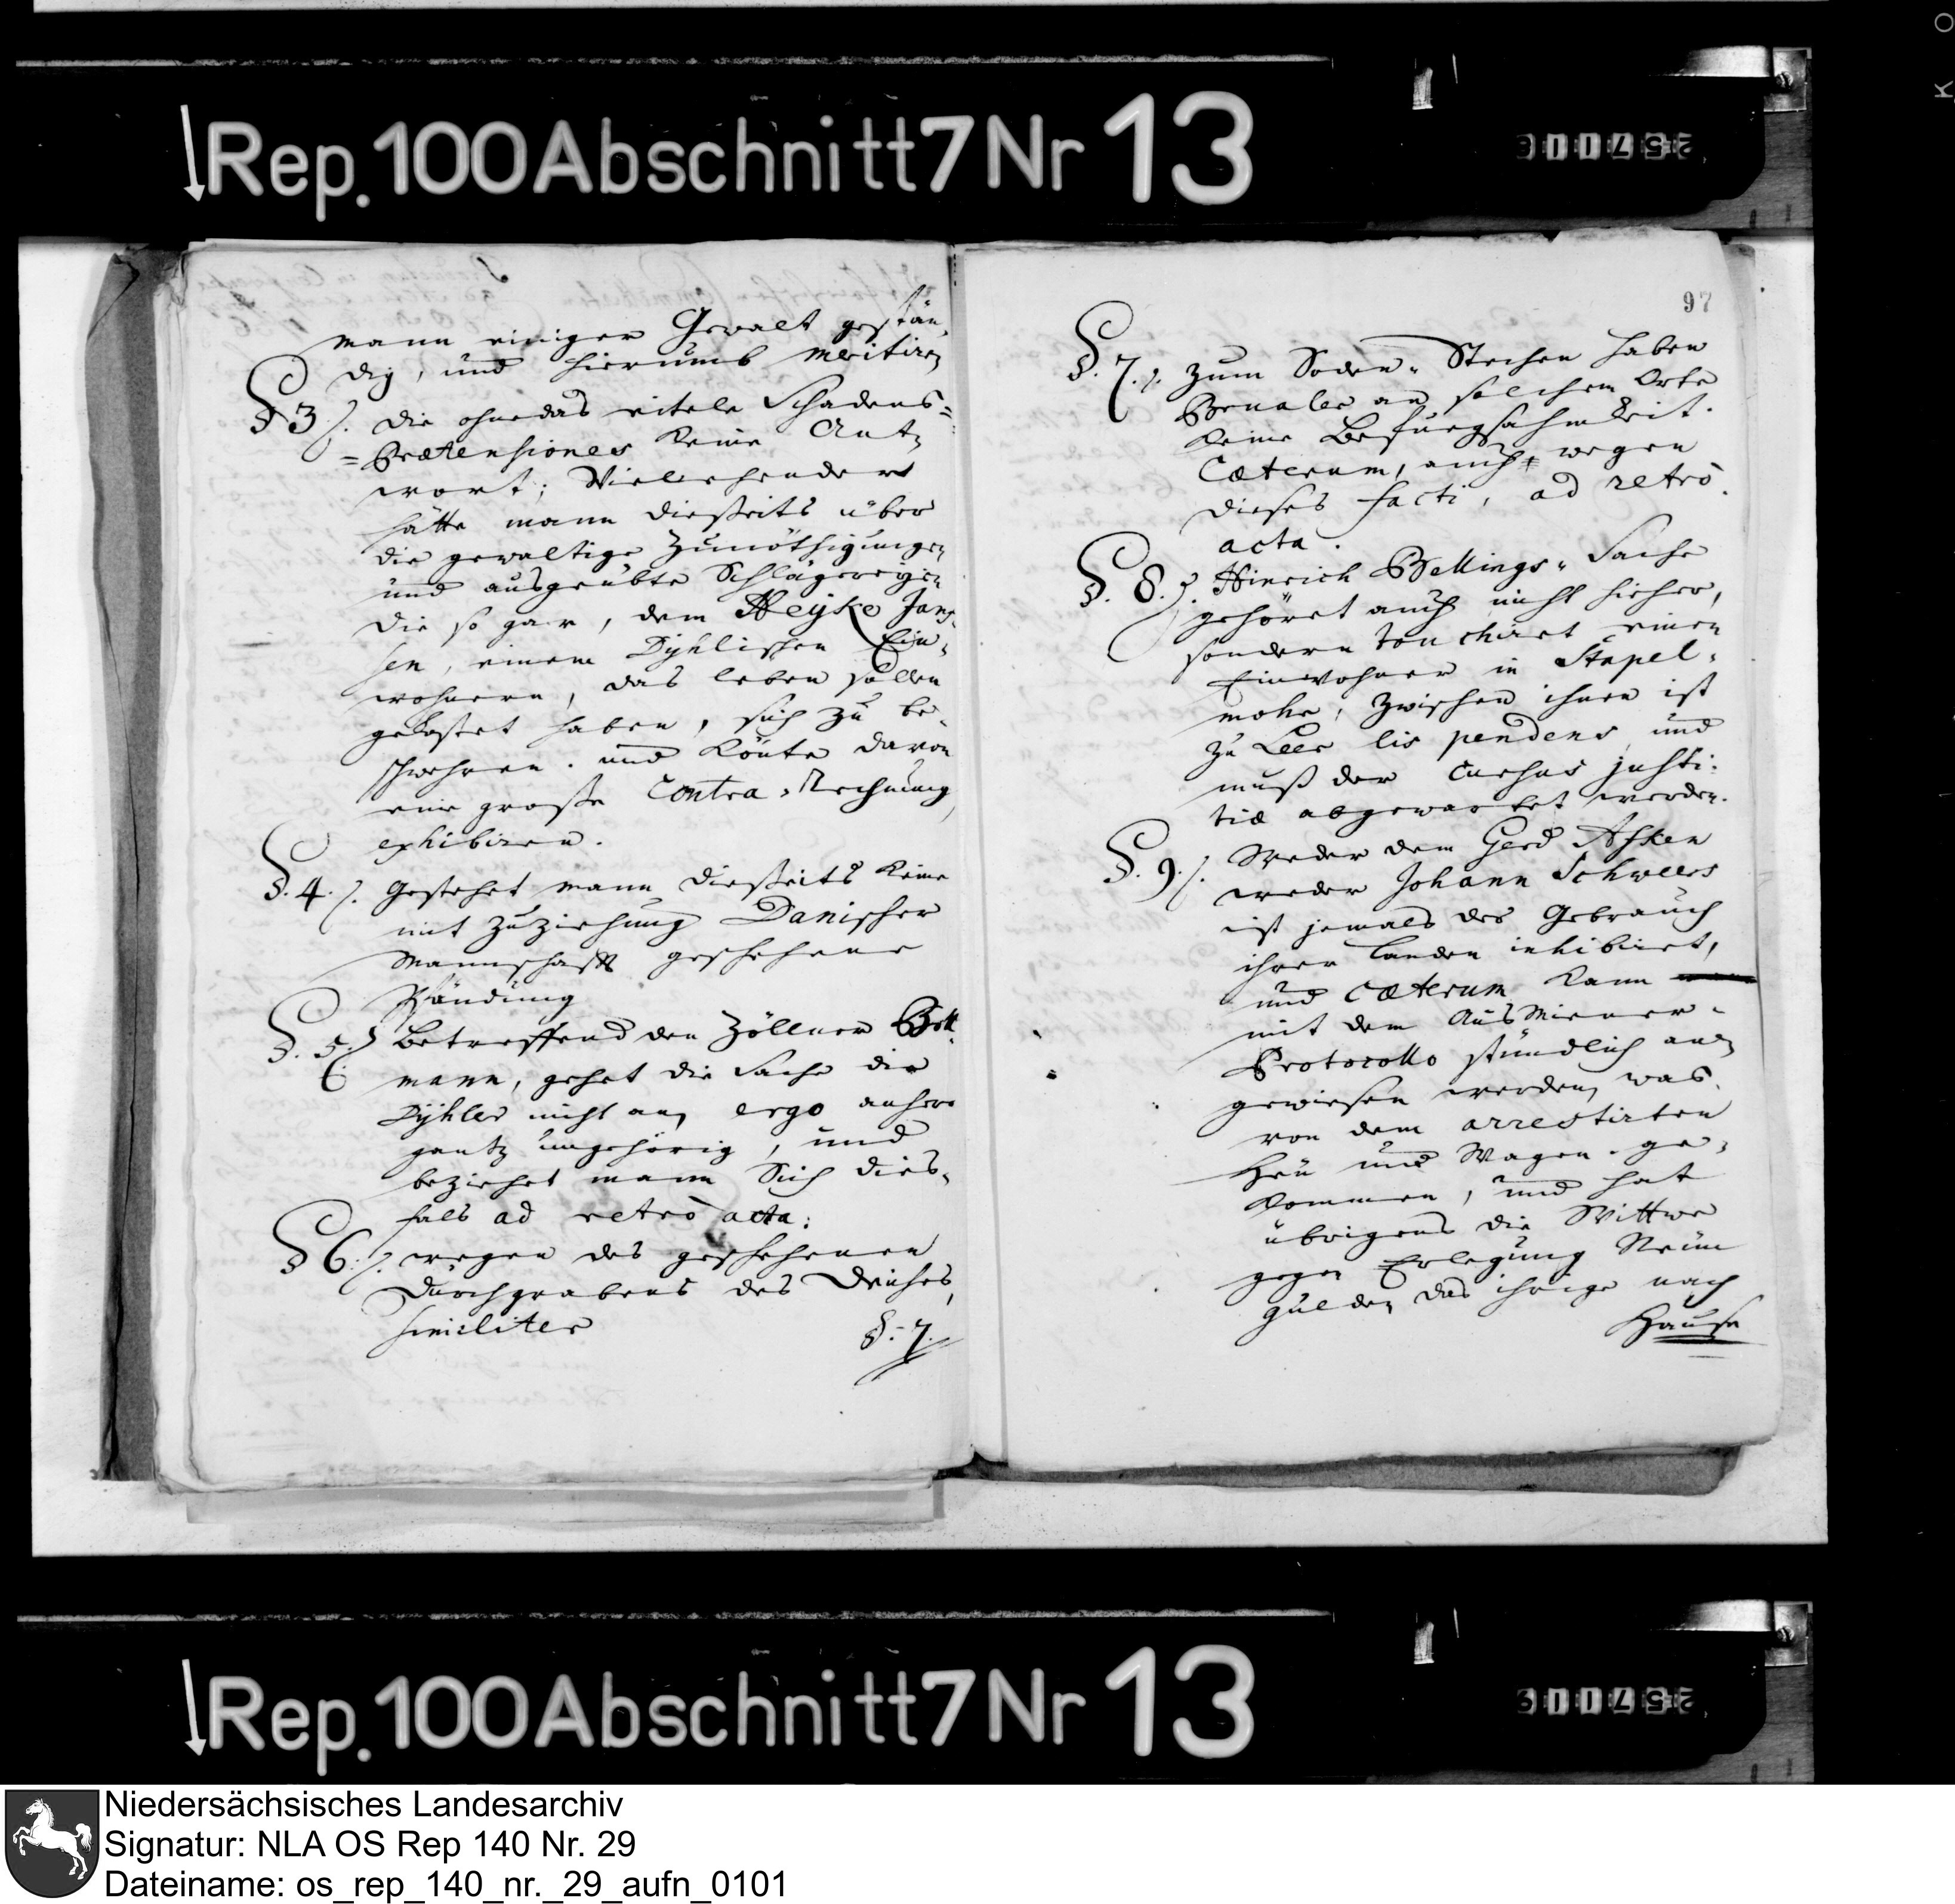 Rep. 100 Abschnitt 7 Nr 13
mann einiger Gewalt gestän-
dig, und hierumb meritiren
§ 3. die ohnedas eitele Schadens=
=Prætensiones keine Ant-
wort; Vielmehr
hätte mann diesseits über
die gewaltige Zunöthigungen
und ausgeübte Schlägereyen
die so gar, dem Heyko Jans-
sen, einem Dyhlischen Ein-
wohnern, das leben sollen
gekostet haben, sich zu be-
schwehren. und könte davon
eine grosse Contra-Rechnung
exhibiren.
§. 4. Gestehet mann diesseits keine
mit Zuziehung Danischer
Mannschafft geschehene
Pfändung
§. 5. Betreffend den Zöllner
mann, gehet die Sache die
Dyhler nicht an, ergo anhero
gantz ungehörig, und
beziehet mann Sich dies-
fals ad retrò acta.
§ 6. wegen des geschehenen
Durchgrabens des Deiches,
similiter
§. 7.
97
§. 7. Zum Soden-Stechen haben
an solchem Orte
keine Befuegsahmkeit.
Cæterum, auch wegen
dieses facti, ad retrò
acta.
§. 8. Hinrich Bellings-Sache
gehöret auch nicht hieher,
sondern touchiret einen
Einwohner in Stapel-
mohr, zwischen ihnen ist
zu Leer lis pendens, und
muß der Cursus justi-
tiæ abgewartet werden.
§. 9. Weder dem Gerd Asken
weder Johann Schweers
ist jemals der Gebrauch
ihrer landen inhibiret,
und cæterum kann
mit dem AusMiener-
Protocollo stündlich an-
gewiesen werden, was
von dem arrestirten
Heu und Wagen ge-
kommen, und hat
übrigens die Wittwe
gegen Erlegung Neun
gulden das ihrige nach
Hause
Rep. 100 Abschnitt 7 Nr 13
Niedersächsisches Landesarchiv
Signatur: NLA OS Rep 140 Nr. 29
Dateiname: os_rep_140_nr._29_aufn_0101